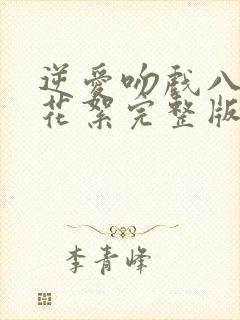 逆爱吻戏八
花絮完整版
李青峰